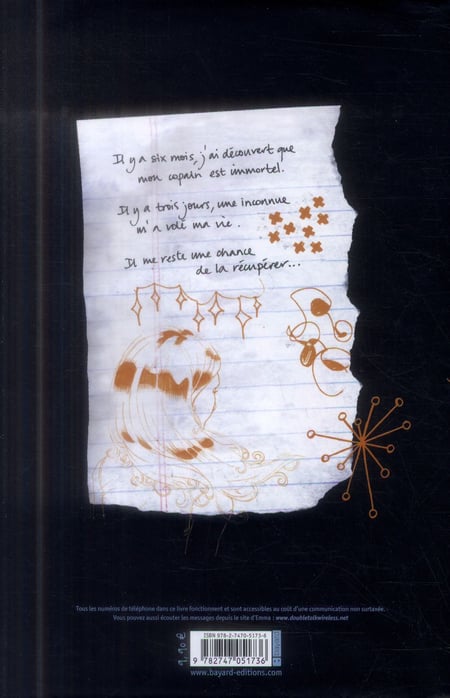 Il y a six mois, j'ai découvert que
mon copain est immortel.
Il y a trois jours, une inconnue
m'a volé ma vie.
Il me reste une chance
de la récupérer...
Tous les numéros de téléphone dans ce livre fonctionnent et sont accessibles au coût d'une communication non surtaxée.
Vous pouvez aussi écouter les messages depuis le site d'Emma : www.doubletalkwireless.net
9,90 €
ISBN 978-2-7470-5173-6
9 782747 051736
www.bayard-editions.com